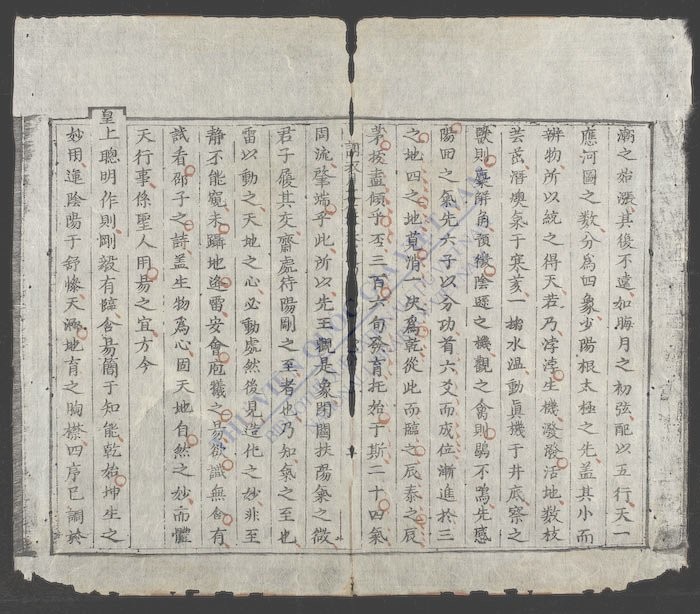 漸之始漲其後不遠如晦月之初弦配以五行天一
應河圖之數分爲四象少陽根太極之先益其小而
辨物所以統之得天若乃浡浡生機潑潑活地數枝
芸茁潛燠氣于寒亥一掬水温動眞機于井底察之
獸則麋解角預機陰遯之機觀之禽則鶡不鳴先感
陽田之氣先六子以分功首六爻而成位漸進於三
之地四之地莧消一決爲乾從此而臨之辰泰之辰
茅拔盡傾乎否三百六旬發育托始于斯二十四氣
周流肇端乎此所以先王觀是象閉關扶陽氣之微
君子履其交齋處待陽剛之至者也乃知氣之至也
雷以動之天地之心必動處然後見造化之妙非至
靜不能窺未躡地逢雷安會庖犧之易欲識無含有
試看邵子之詩盖生物爲心固天地自然之妙而體
天行事係聖人用易之宜方今
皇上聰明作則剛毅有臨含易簡于知能乾始坤生之
妙用進陰陽于舒慘天涵地育之胸襟四序已調於